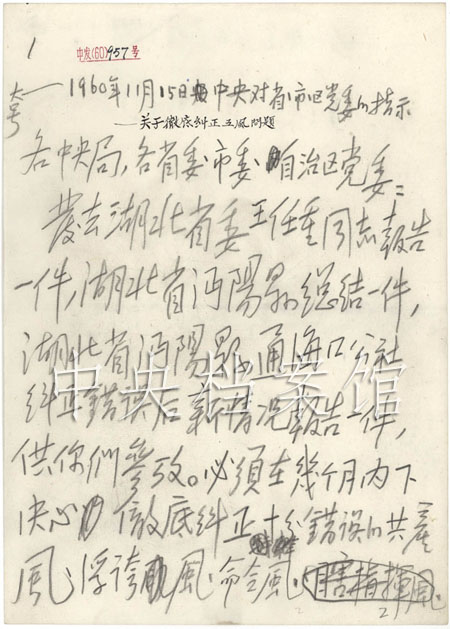 1
中发(60)957号
大号
——1960年11月15日中央对省市区党委的指示
——关于彻底纠正五风问题
各中央局,各省委、市委、自治区党委:
發去湖北省委王任重同志報告
一件,湖北省沔陽县总结一件,
湖北省沔陽县通海口公社
纠正錯误后新情况報告一件,
供你們參攷。必須在幾个月内下
决心徹底纠正十分錯误的共產
風、浮誇風、命令風、瞎指揮風、
2
中央档案馆